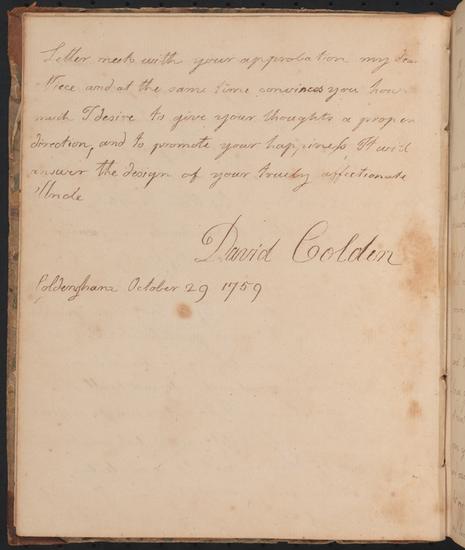 Letter meets with your approbation my dear
Niece and at the same time convinces you how
much I desire to give your thoughts a proper
direction, and to promote your happiness It will
answer the design of your truely affectionate
Uncle
David Colden
Coldengham October 29 1759